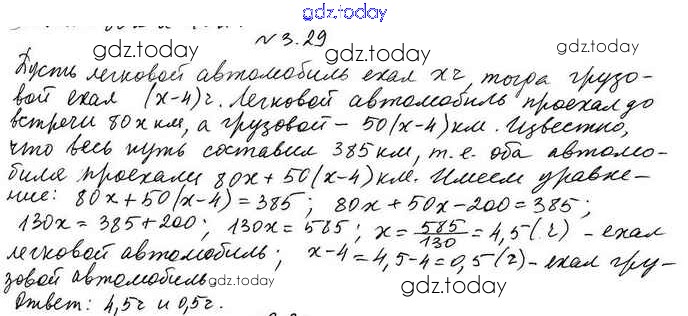 gdz.today
№3.29
gdz.today gdz.today
Пусть легковой автомобиль ехал x ч, тогда грузо-
вой ехал (x-4) ч. Легковой автомобиль проехал до
gdz.today gdz.today
встречи 80x км, а грузовой - 50(x-4) км. Известно,
что весь путь составил 385 км, т.е. оба автомо-
биля проехали 80x + 50(x-4) км. Имеем уравне-
gdz.today gdz.today
ние: 80x + 50(x-4) = 385; 80x + 50x - 200 = 385;
130x = 385 + 200; 130x = 585; x = 585/130 = 4,5 (ч) - ехал
gdz.today gdz.today
легковой автомобиль; x-4 = 4,5-4 = 0,5 (ч) - ехал гру-
зовой автомобиль
gdz.today gdz.today
Ответ: 4,5ч и 0,5ч.